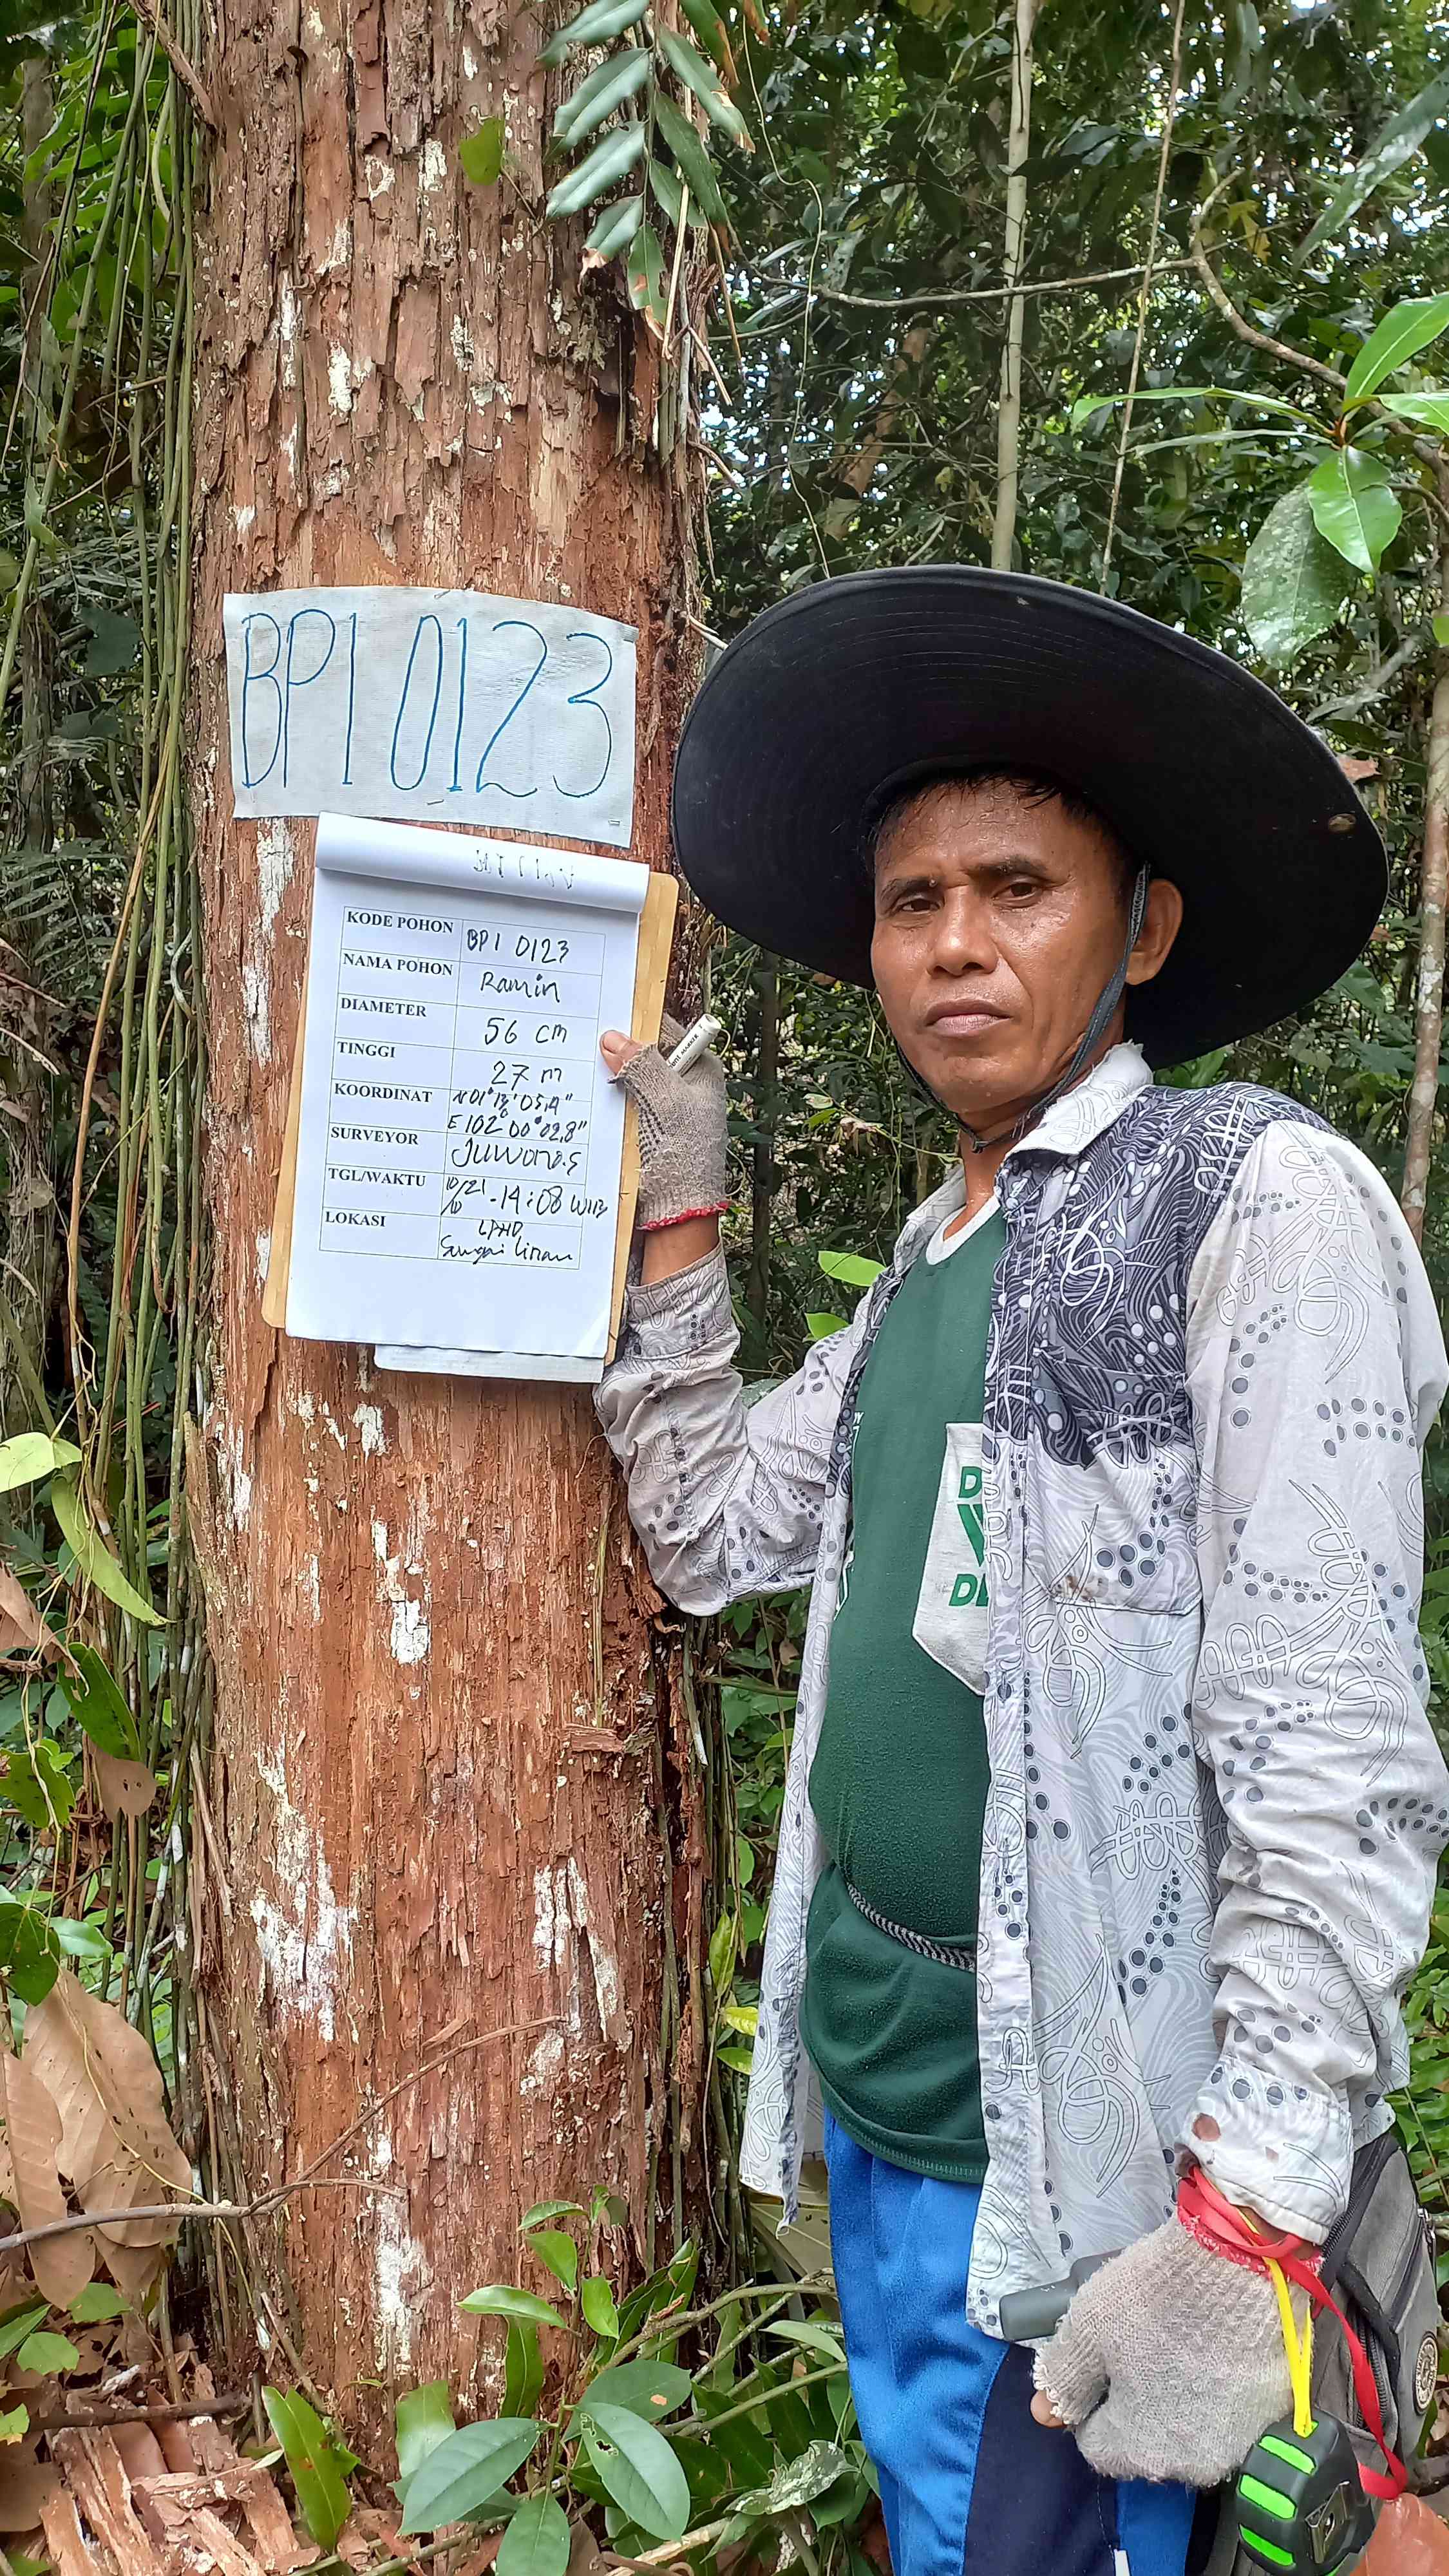 BP1 0123
KODE POHON BP1 0123
NAMA POHON Ramin
DIAMETER 56 cm
TINGGI 27 m
KOORDINAT N 01°
E 102° 00' 02,8"
SURVEYOR JUWONO.S
TGL/WAKTU 14:08 WIB
LOKASI LPHD
Sungai Linau